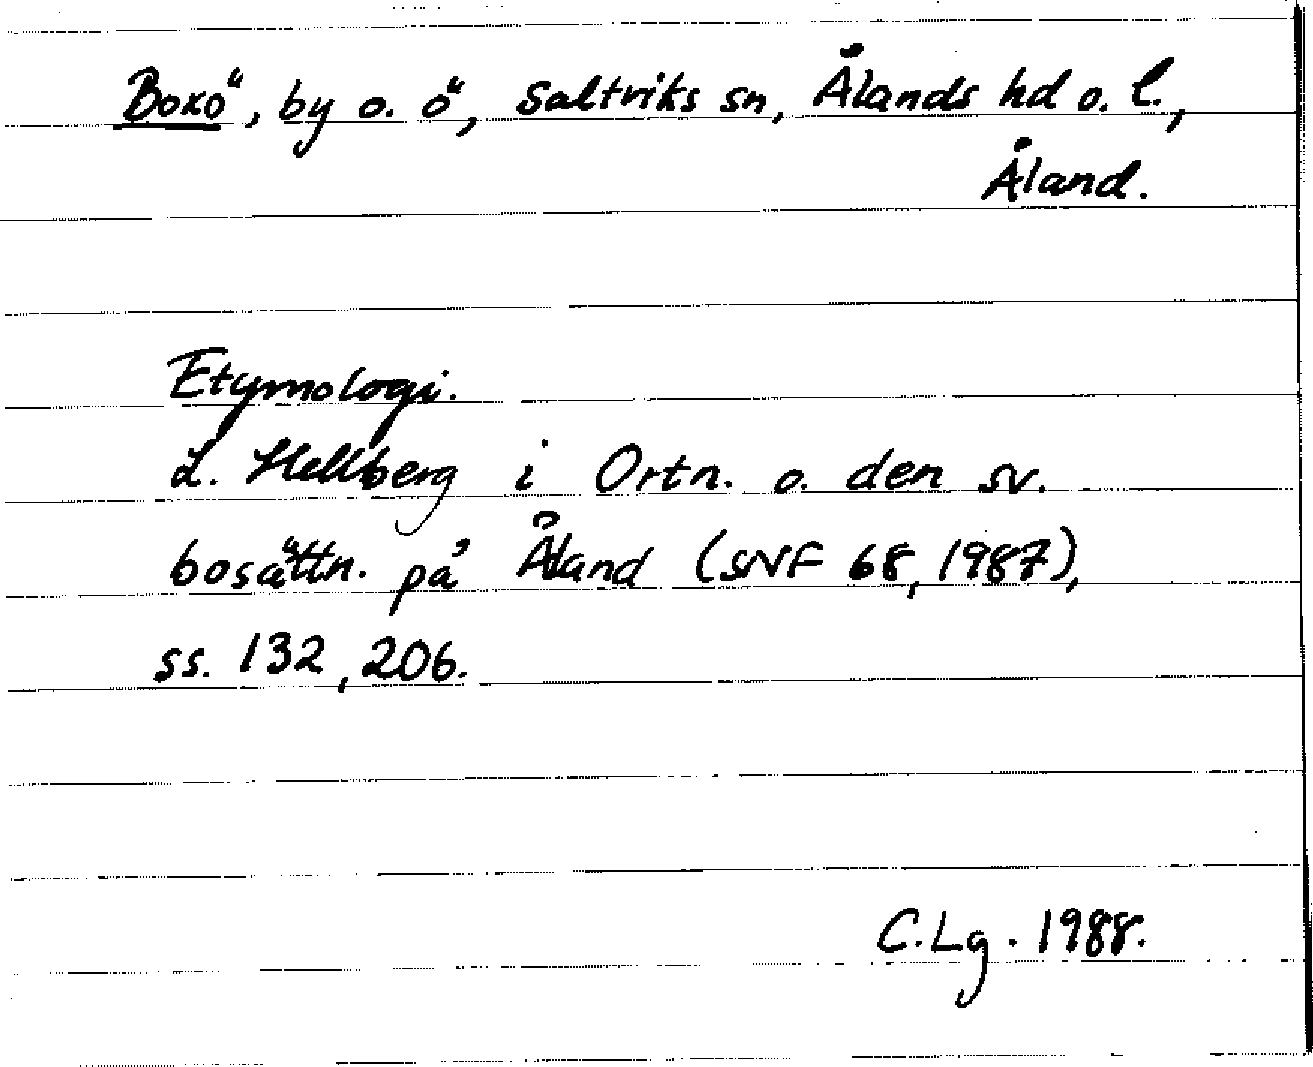 Boxö, by o. ö, Saltviks sn, Ålands hd o. l.,
Åland.
Etymologi.
L. Hellberg i Ortn. o. den sv.
bosättn. på Åland (SNF 68, 1987),
ss. 132, 206.
C.Lg. 1988.